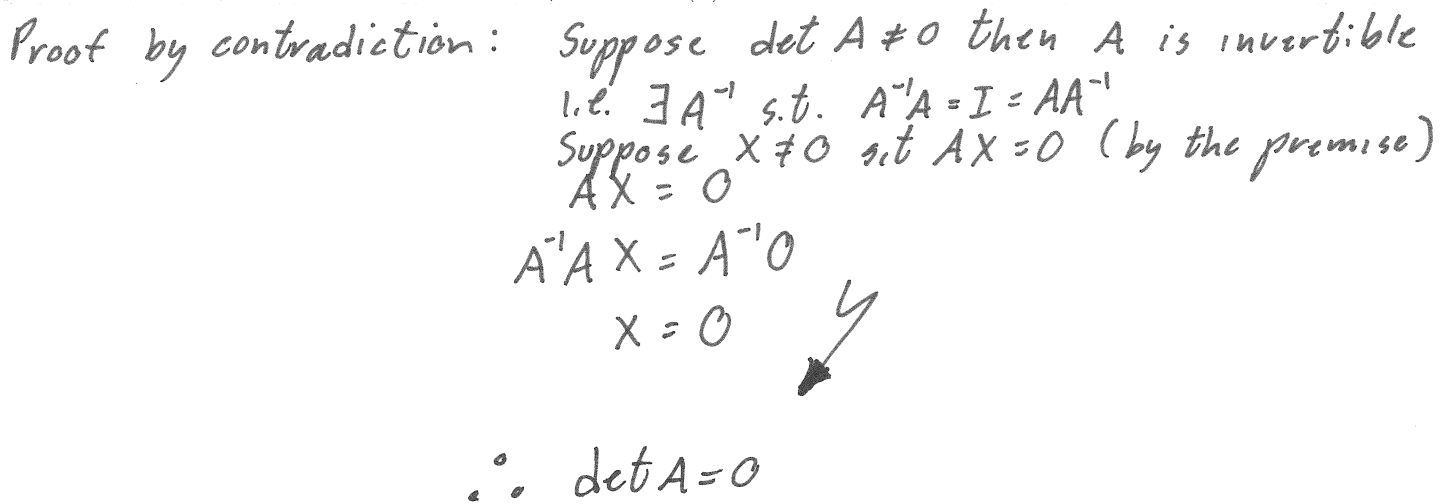 Proof by contradiction: Suppose det A ≠ 0 then A is invertible
i.e. ∃ A⁻¹ s.t. A⁻¹A = I = AA⁻¹
Suppose X ≠ 0 s.t AX = 0 (by the premise)
AX = 0
A⁻¹A X = A⁻¹0
X = 0
∴ det A = 0